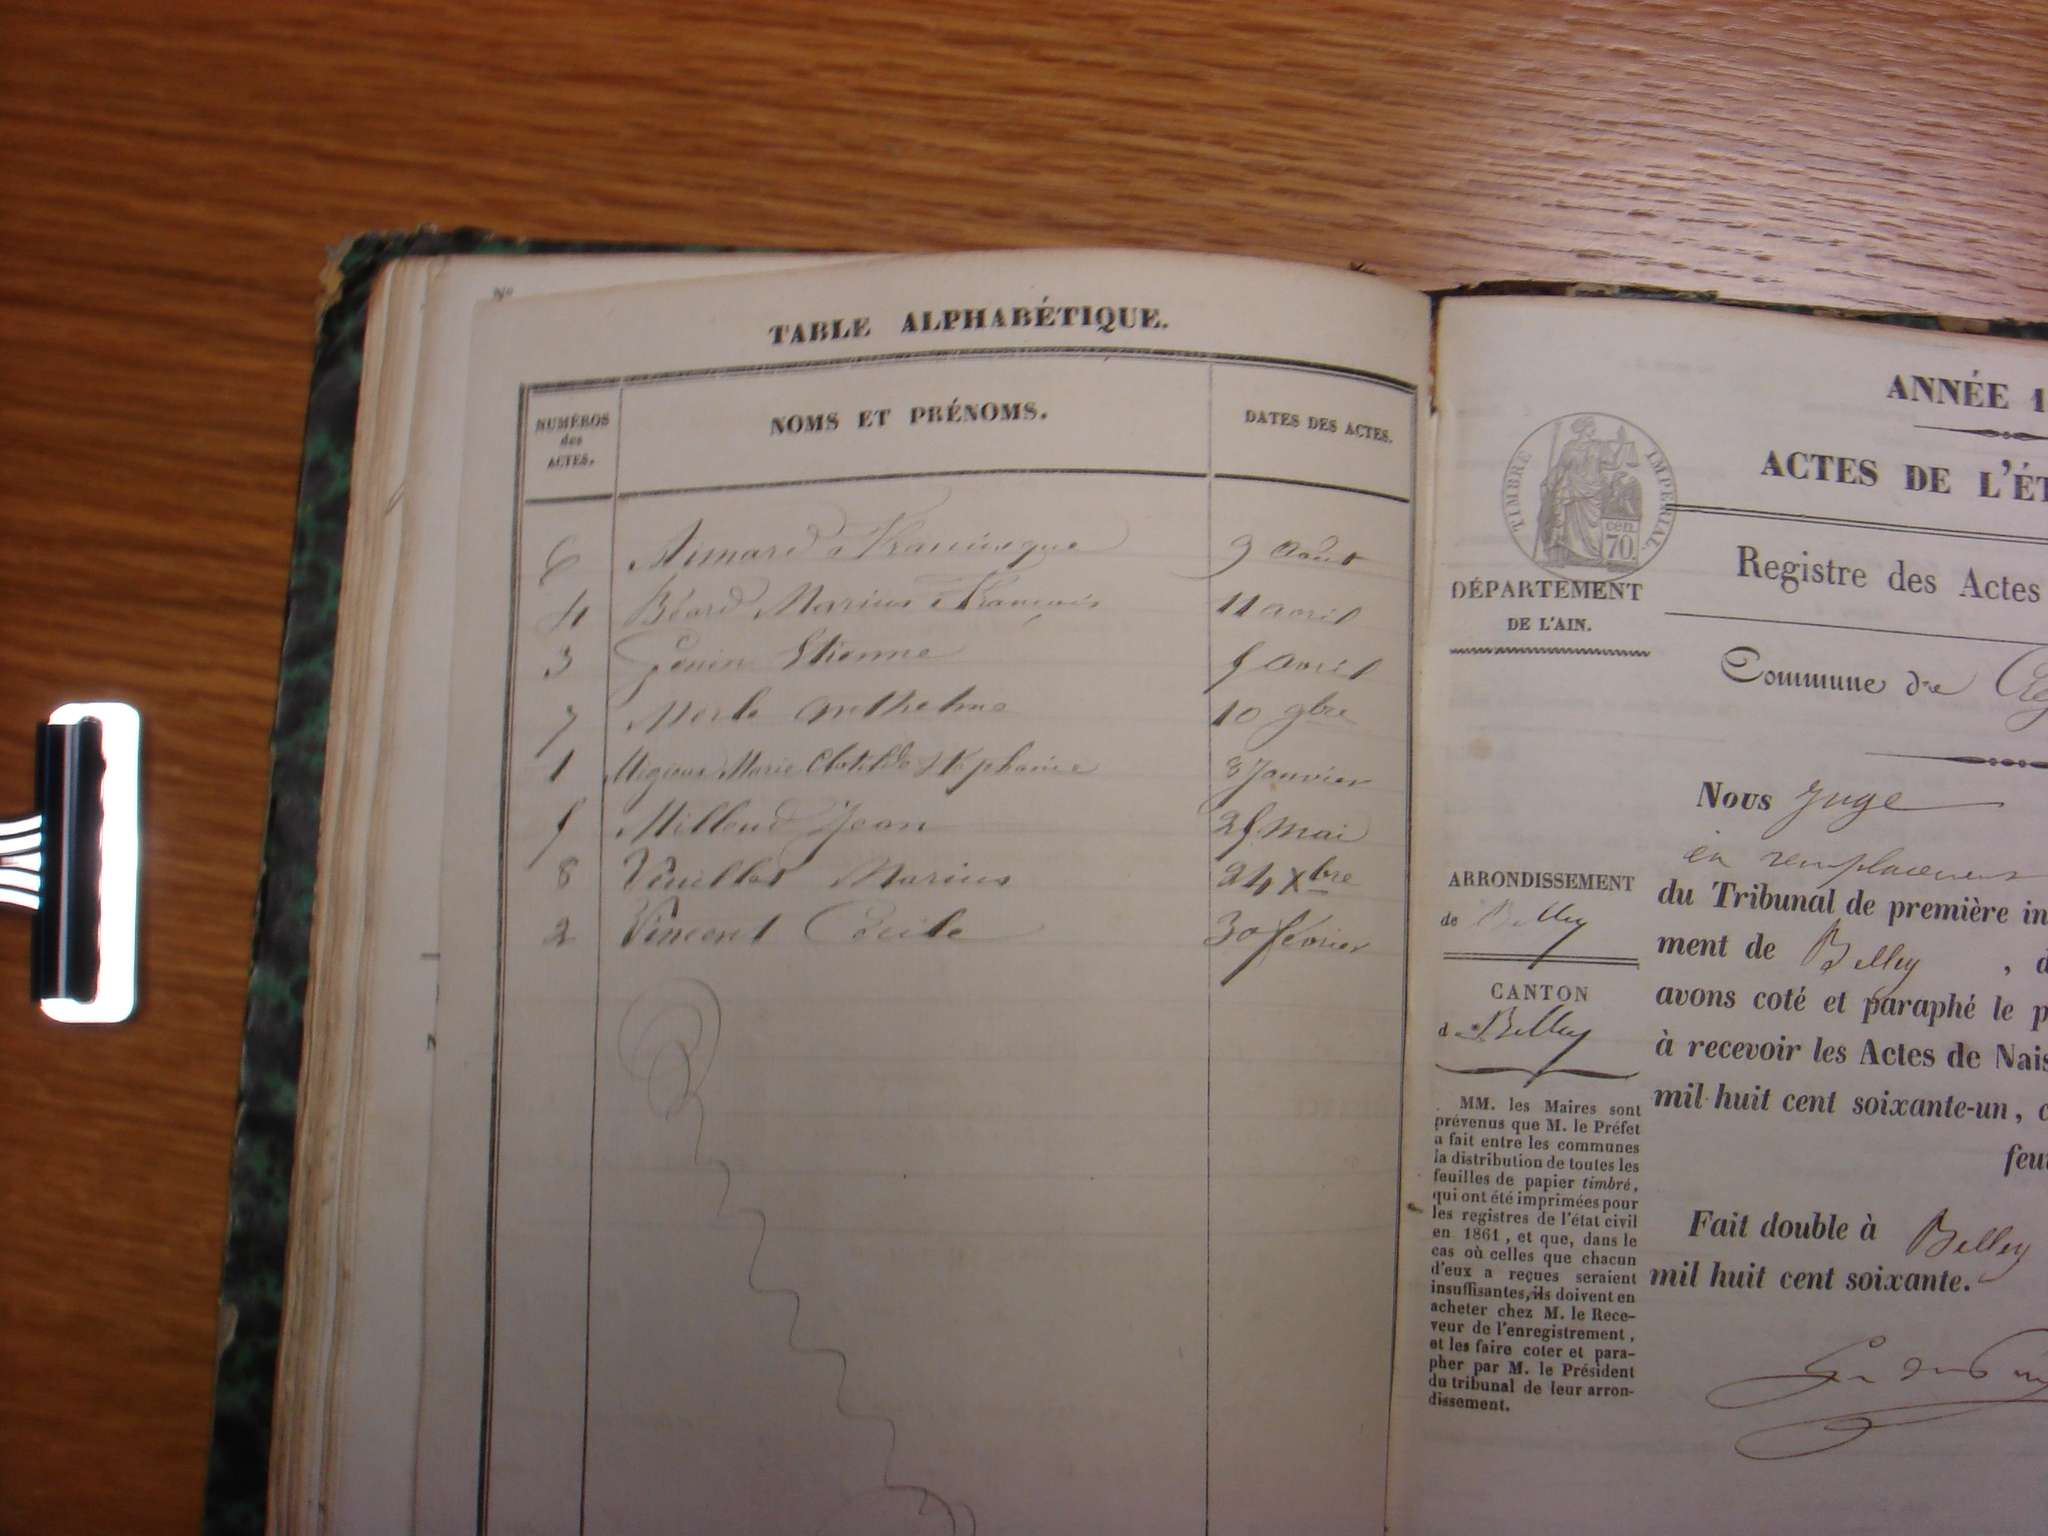 N°
TABLE ALPHABÉTIQUE.
NUMÉROS
des
ACTES.
NOMS ET PRÉNOMS.
DATES DES ACTES.
6 Aimard Francisque 9 aout
4 Béard Marius François 11 avril
3 Genin Etienne 5 avril
7 Merle Anthelme 10 9bre
1 Migieux Marie Clotilde Stéphanie 8 Janvier
5 Milloud Jean 25 mai
8 Vuillot Marius 24 Xbre
2 Vincent Cécile 30 février
ANNÉE 1
ACTES DE L'ÉT
TIMBRE IMPERIAL.
cen.
70.
DÉPARTEMENT
DE L'AIN.
Registre des Actes
Commune de
Nous Juge
en remplacement
ARRONDISSEMENT
de Belley
du Tribunal de première in
ment de Belley , d
CANTON
de Belley
avons coté et paraphé le p
à recevoir les Actes de Nais
mil huit cent soixante-un, c
feui
MM. les Maires sont
prévenus que M. le Préfet
a fait entre les communes
la distribution de toutes les
feuilles de papier timbré,
qui ont été imprimées pour
les registres de l'état civil
en 1861, et que, dans le
cas où celles que chacun
d'eux a reçues seraient
insuffisantes, ils doivent en
acheter chez M. le Rece-
veur de l'enregistrement,
et les faire coter et para-
pher par M. le Président
du tribunal de leur arron-
dissement.
Fait double à Belley
mil huit cent soixante.